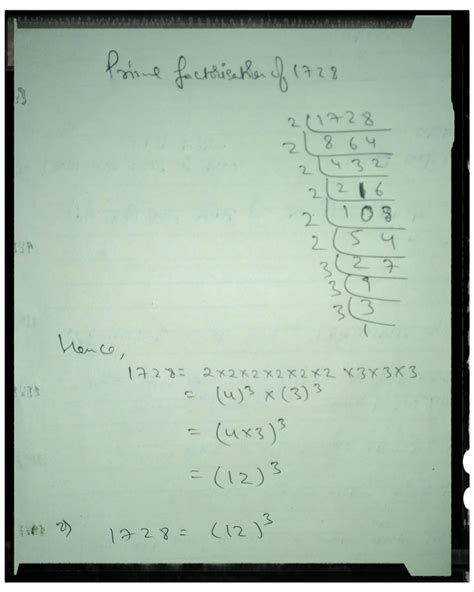 Prime factorisation of 1728
2 | 1728
2 | 864
2 | 432
2 | 216
2 | 108
2 | 54
3 | 27
3 | 9
3 | 3
1
Hence,
1728 = 2×2×2×2×2×2 ×3×3×3
= (4)³ × (3)³
= (4×3)³
= (12)³
2) 1728 = (12)³